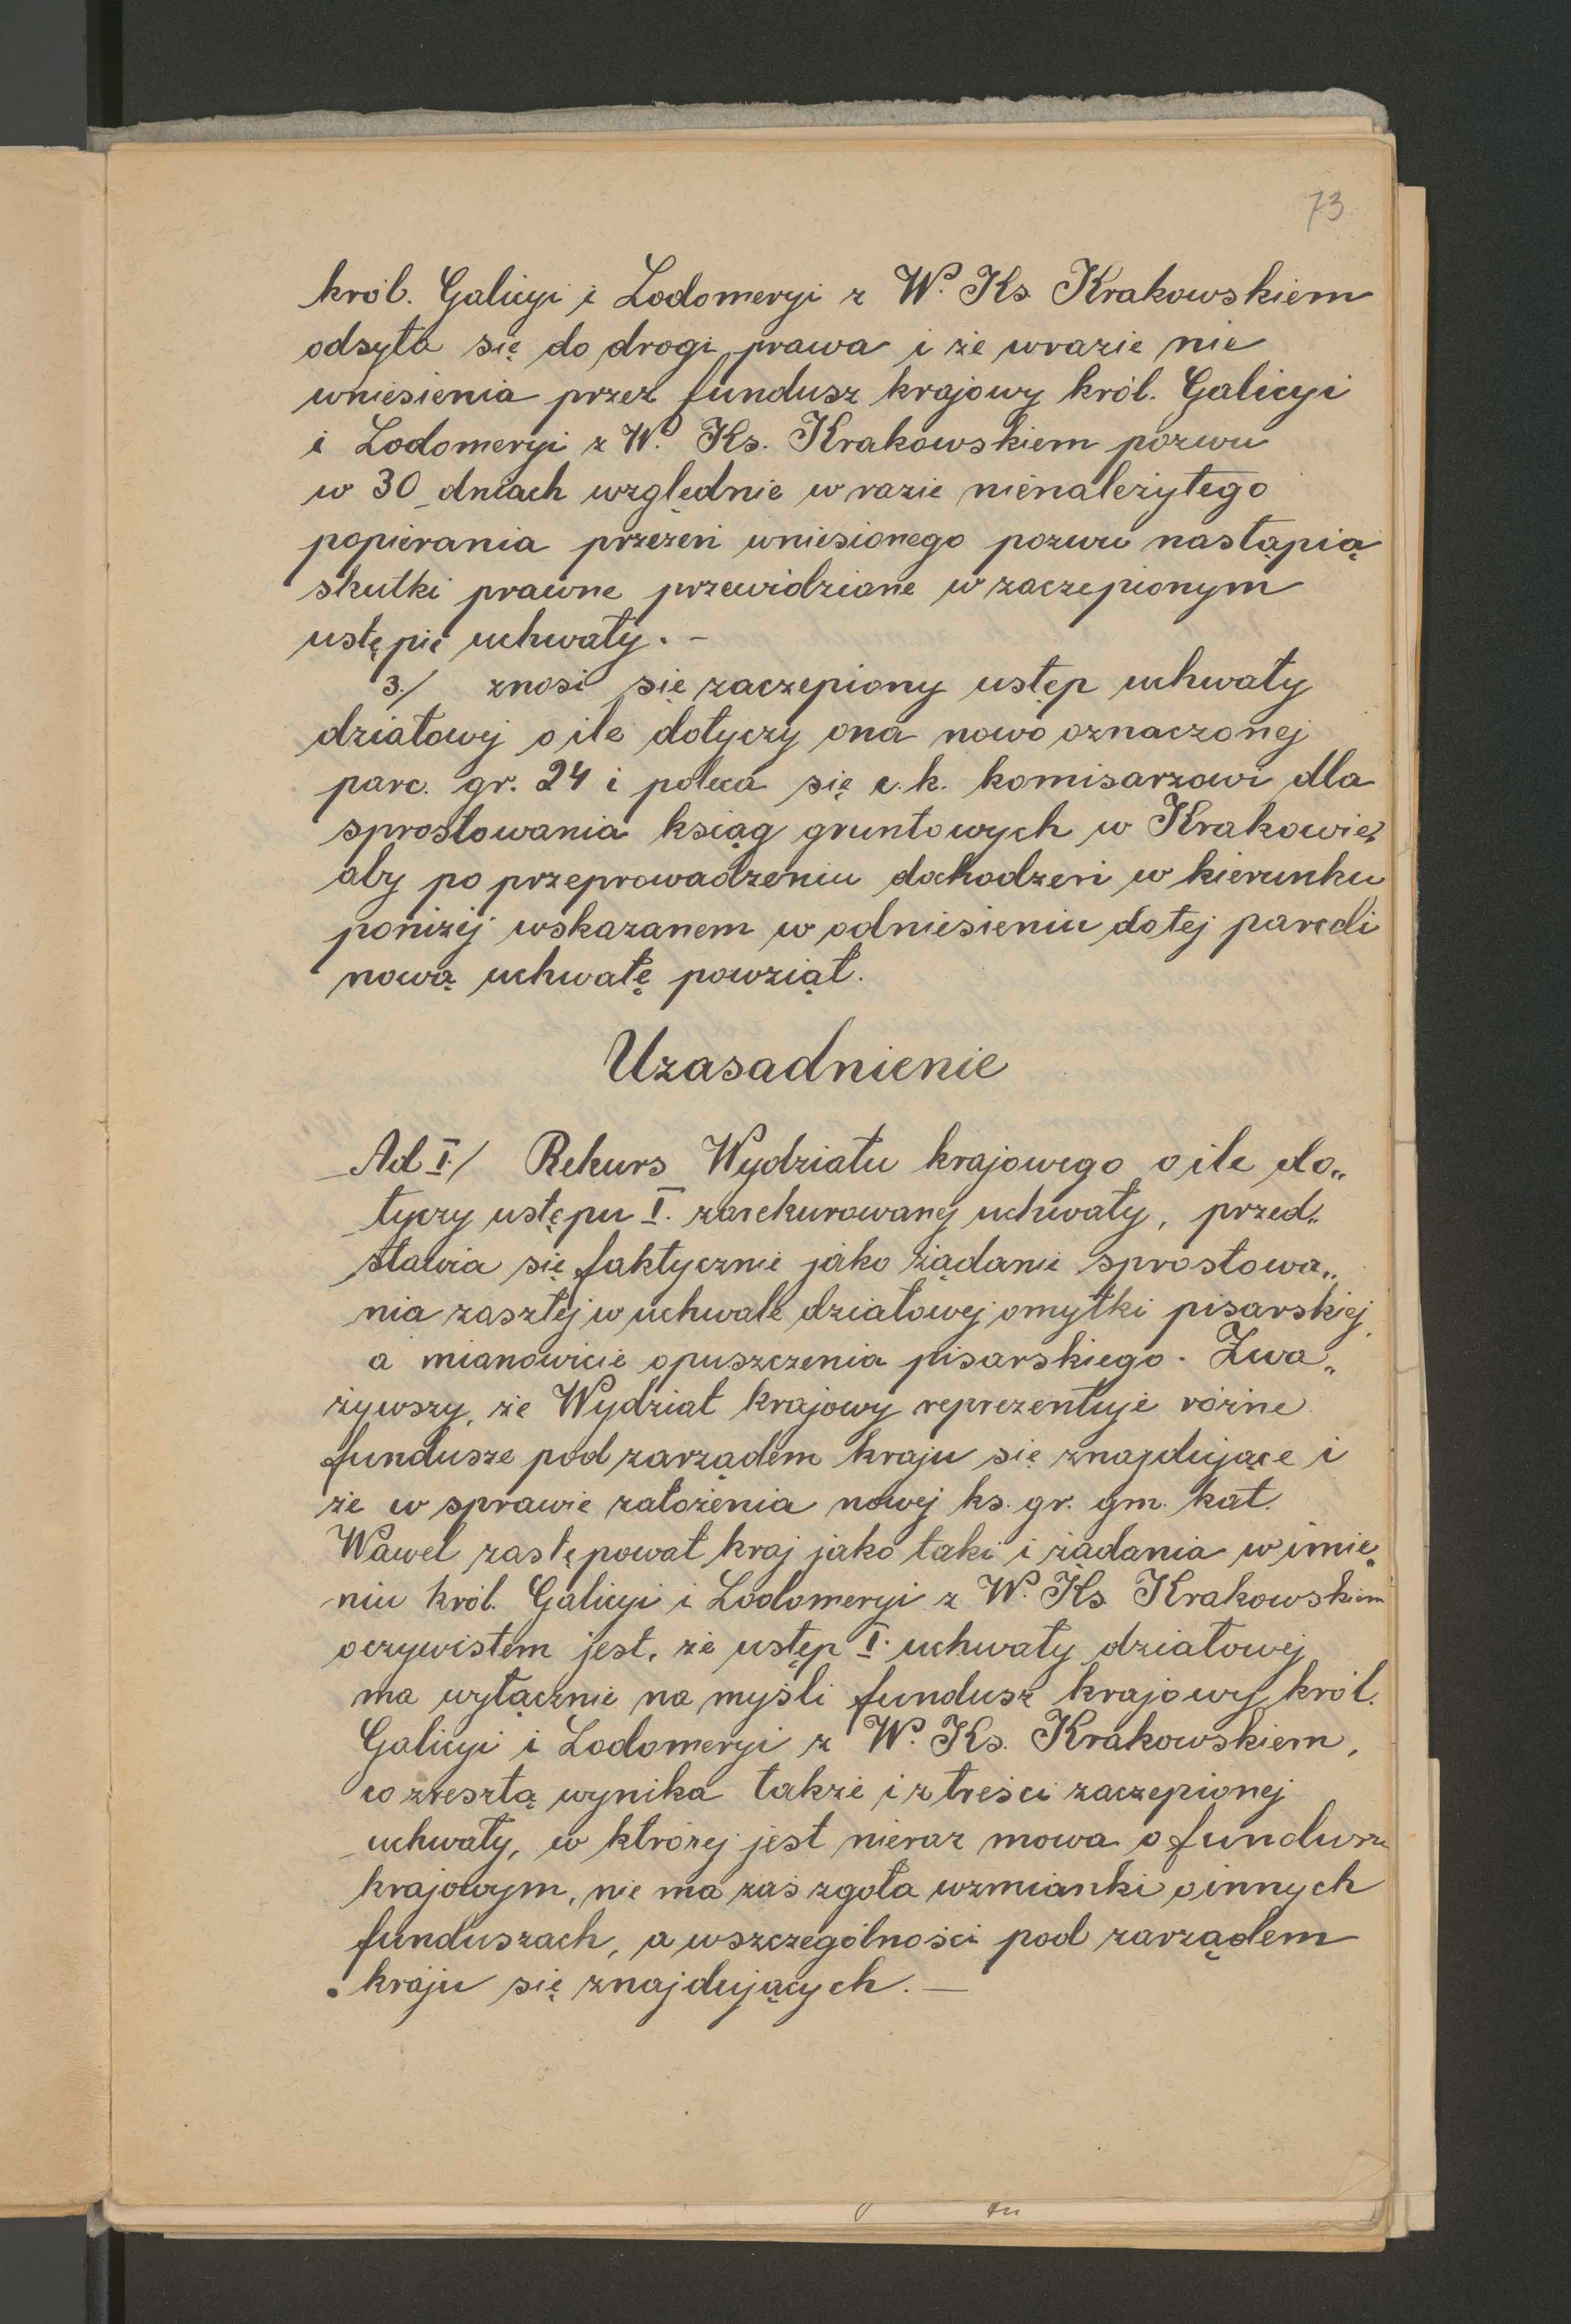 73
król. Galicyi i Lodomeryi z W. Ks. Krakowskiem
odsyła się do drogi prawa i że wrazie nie
wniesienia przez fundusz krajowy król. Galicyi
i Lodomeryi z W. Ks. Krakowskiem pozwu
w 30 dniach względnie w razie nienależytego
popierania przezeń wniesionego pozwu nastąpią
skutki prawne przewidziane w zaczepionym
ustępie uchwały. –
3./ znosi się zaczepiony ustęp uchwały
działowej o ile dotyczy ona nowo oznaczonej
parc. gr. 24 i poleca się c. k. komisarzowi dla
sprostowania ksiąg gruntowych w Krakowie,
aby po przeprowadzeniu dochodzeń w kierunku
poniżej wskazanem w odniesieniu do tej parceli
nową uchwałę powziął.
Uzasadnienie
Ad I./ Rekurs Wydziału krajowego o ile do„
tyczy ustępu I. zarekurowanej uchwały, przed„
stawia się faktycznie jako żądanie sprostowa„
nia zaszłej w uchwale działowej omyłki pisarskiej,
a mianowicie opuszczenia pisarskiego. Zwa„
żywszy, że Wydział krajowy reprezentuje różne
fundusze pod zarządem kraju się znajdujące i
że w sprawie założenia nowej ks. gr. gm. kat.
Wawel zastępował kraj jako taki i żądania w imie„
niu król. Galicyi i Lodomeryi z W. Ks. Krakowskiem
oczywistem jest, że ustęp I. uchwały działowej
ma wyłącznie na myśli fundusz krajowy król.
Galicyi i Lodomeryi z W. Ks. Krakowskiem,
co zresztą wynika także i z treści zaczepionej
uchwały, w której jest nieraz mowa o funduszu
krajowym, nie ma zaś zgoła wzmianki o innych
funduszach, a wszczególności pod zarządem
kraju się znajdujących. —